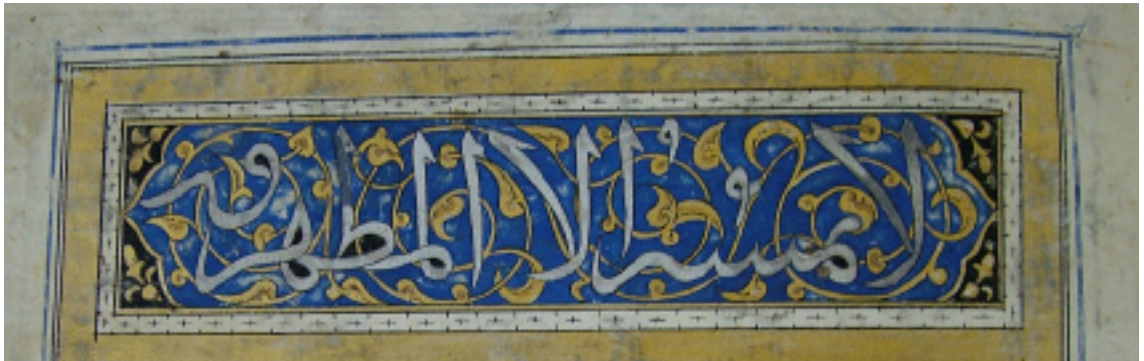 لا يمسه إلا المطهرون